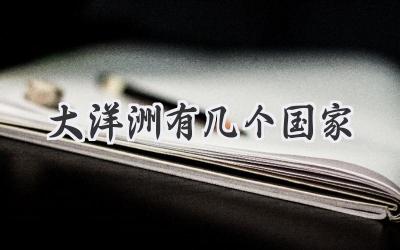 大洋洲有几个国家